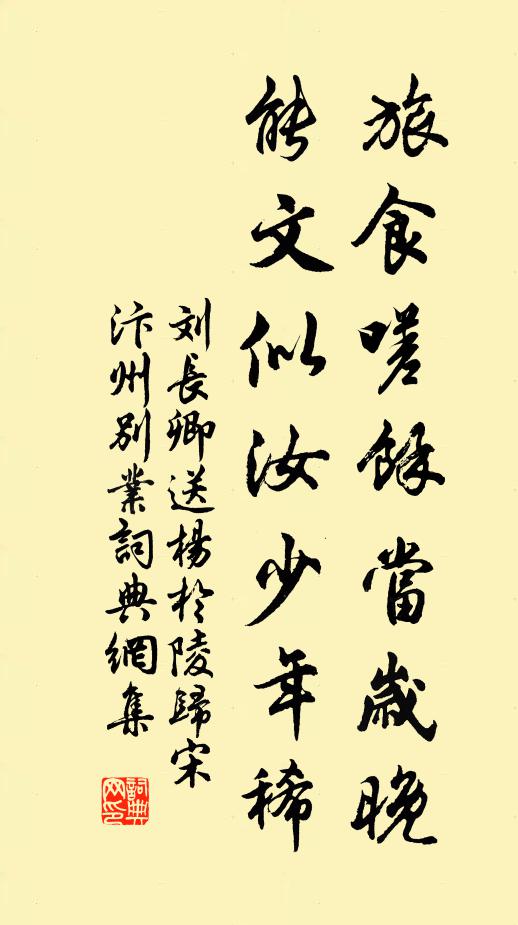 旅食嗟餘當歲晚
能文似汝少年稀
刘長卿送楊於陵歸宋
汴州別業詞典網集
詞典
网印